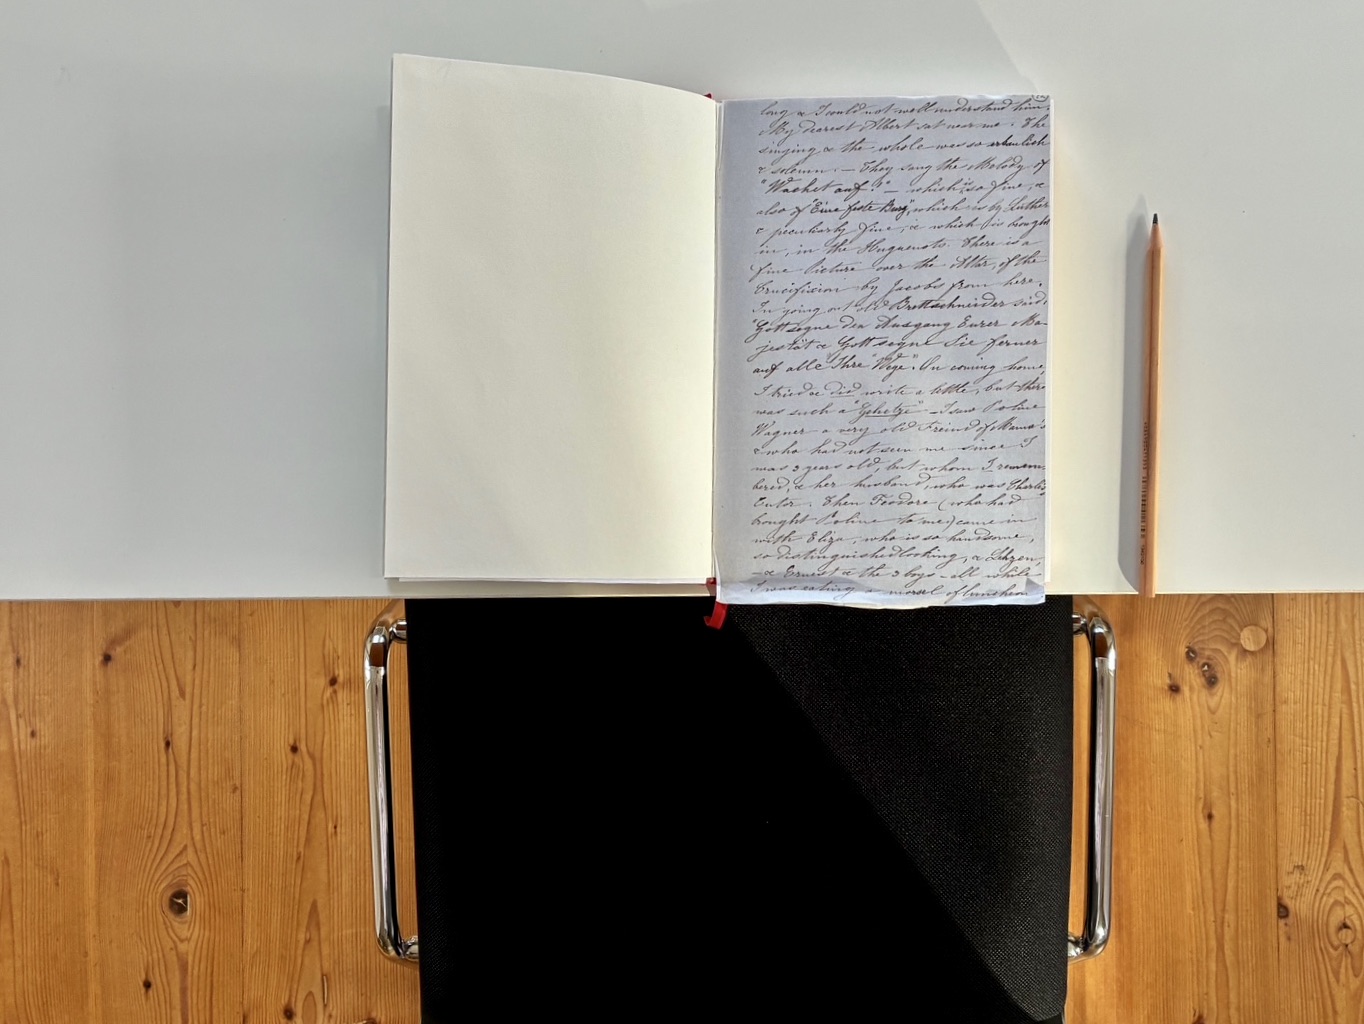 long & I could not well understand him.
My dearest Albert sat near me. The
singing & the whole was so erbaulich
& solemn. — They sang the Melody of
"Wachet auf!" — which is so fine, &
also of "Eine feste Burg", which is by Luther
& peculiarly fine, & which is brought
in, in the Huguenots. There is a
fine Picture over the Altar, of the
Crucifixion by Jacobs from here.
In going out old Brettschneider said,
"Gott segne den Ausgang Eurer Ma-
jestät & Gott segne Sie ferner
auf alle Ihre Wege". On coming home,
I tried & did write a little, but there
was such a "Gehetze" – I saw Poline
Wagner a very old Freind of Mama's
& who had not seen me since I
was 3 years old, but whom I remem-
bered, & her husband, who was Charles's
Tutor. Then Feodore (who had
brought Poline to me) came in
with Eliza, who is so handsome,
so distinguishedlooking, & Lehzen,
– & Ernest & the 3 boys – all while
I was eating a morsel of luncheon